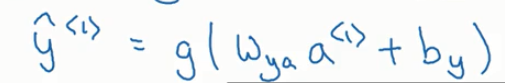 ŷ<1> = g(Wya a<1> + by)